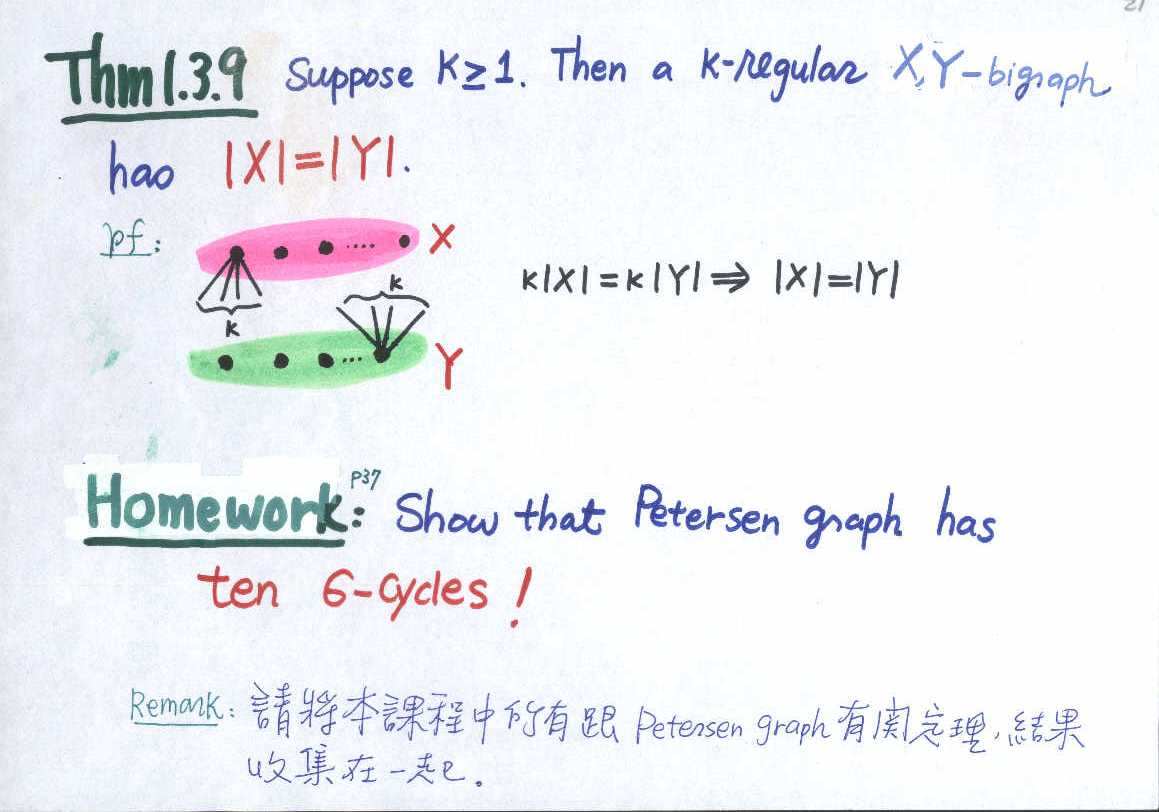 21
Thm 1.3.9 Suppose K≥1. Then a K-regular X,Y-bigraph
has |X|=|Y|.
pf:
X
K
K
K|X|=K|Y|⇒|X|=|Y|
Y
Homework: P37 Show that Petersen graph has
ten 6-cycles!
Remark: 請將本課程中所有跟 Petersen graph 有関定理,結果
收集在一起.